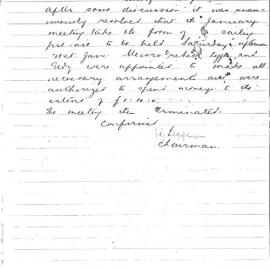 After some discussion it was unan-
imously resolved that the January
meeting take the form of a
picnic to be held Saturday afternoon
Messrs and
Eedy were appointed to make all
necessary arrangements and were
authorized to spend money to the
extent of £1.10.0.
The meeting then terminated.
Confirmed
Chairman.